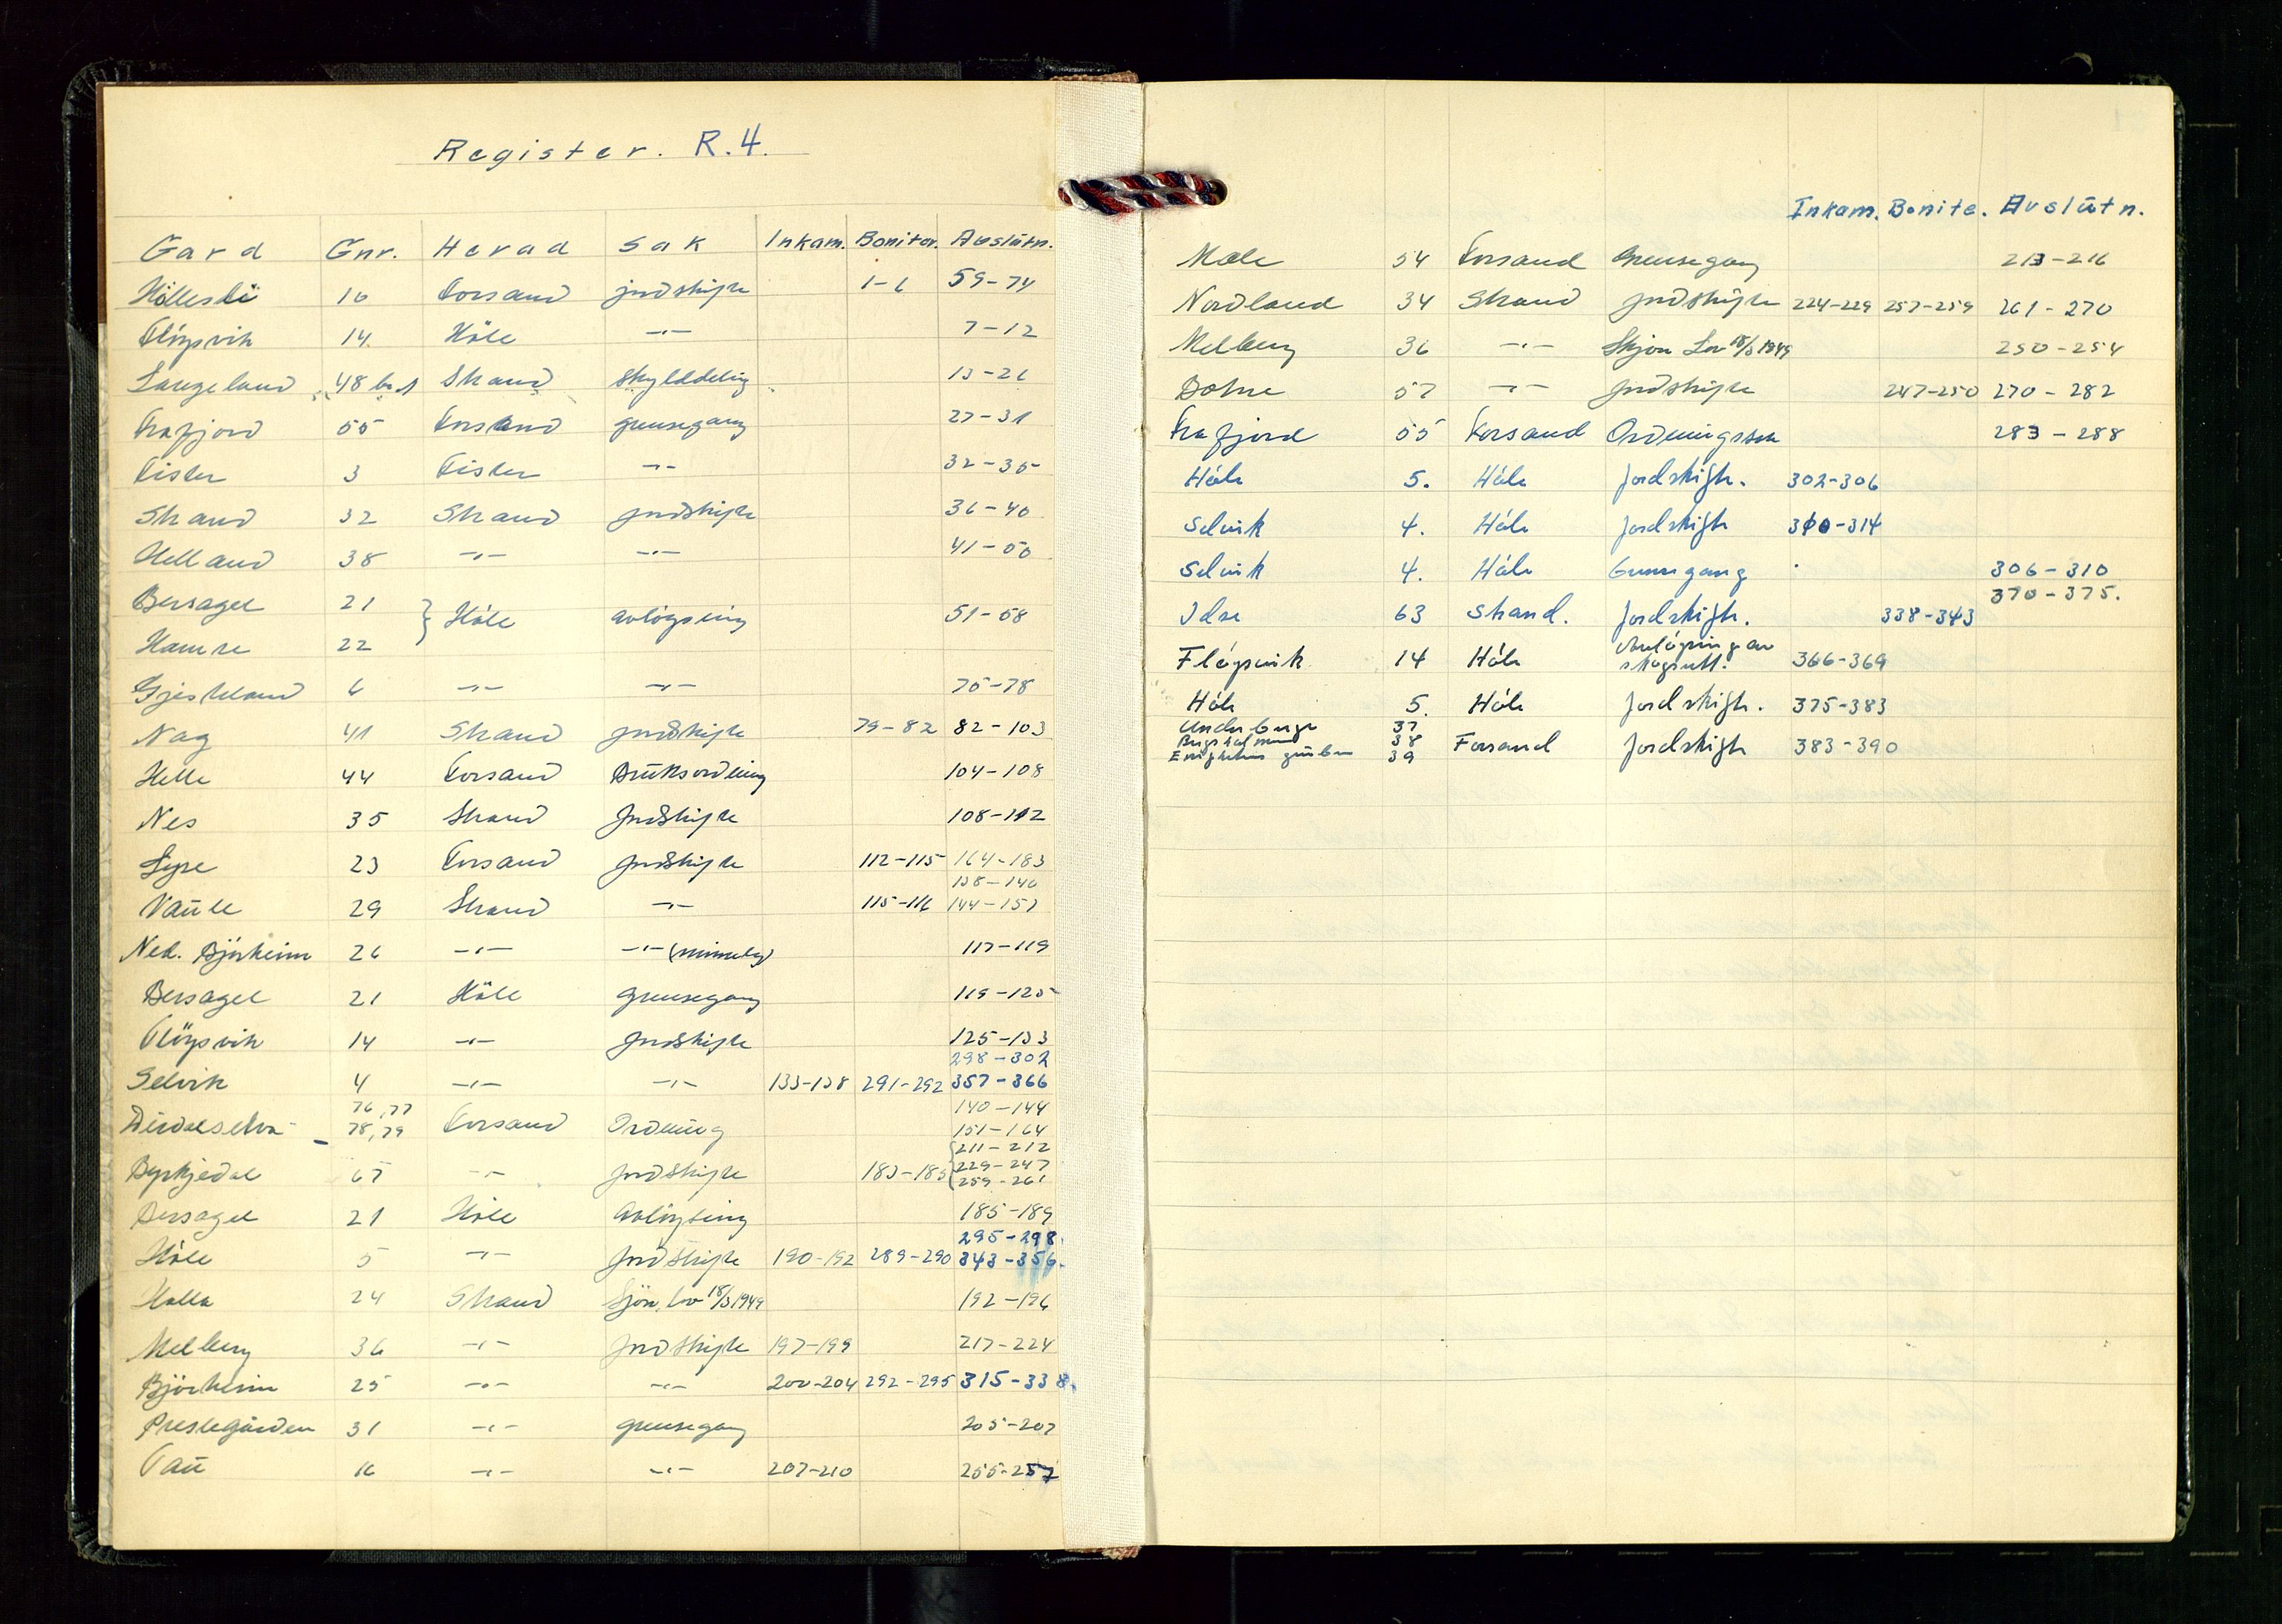 Register. R.4.
Gard Gnr. Herad Sak Inkam. Boniter. Avslutn.
Höllesli 16 Forsand jordskifte 1-6 59-74
Flöysvik 14 Höle -"- 7-12
Langeland 48 bn 1 Strand skylddeling 13-26
Frafjord 55 Forsand grensegang 27-31
Fister 3 Fister -"- 32-35
Strand 32 Strand jordskifte 36-40
Helland 38 -"- -"- 41-50
Bersagel 21
} Höle avlöysing 51-58
Hamre 22
Gjesteland 6 -"- -"- 75-78
Nag 41 Strand jordskifte 79-82 82-103
Helle 44 Forsand Bruksordning 104-108
Nes 35 Strand Jordskifte 108-112
Lyse 23 Forsand Jordskifte 112-115 164-183
138-140
Vaule 29 Strand -"- 115-116 144-151
Ned. Björheim 26 -"- -"- (minnelig) 117-119
Bersagel 21 Höle grensegang 119-125
Flöysvik 14 -"- Jordskifte 125-133
298-302
Selvik 4 -"- -"- 133-138 291-292 357-366
76, 77 140-144
Dirdalselva 78, 79 Forsand Ordning 151-164
211-212
Byrkjedal 67 -"- Jordskifte 183-185 229-247
259-261
Bersagel 21 Höle Avlöysing 185-189
295-298.
Höle 5 -"- Jordskifte 190-192 289-290 343-356.
Holta 24 Strand Sjön. lov 18/3 1949 192-196
Melberg 36 -"- Jordskifte 197-199 217-224
Björheim 25 -"- -"- 200-204 292-295 315-338.
Prestegården 31 -"- grensegang 205-207
Tau 16 -"- -"- 207-210 255-257
Inkam. Bonite. Avslutn.
Mæle 54 Forsand Grensegang 213-216
Nordland 34 Strand Jordskifte 224-229 257-259 261-270
Melberg 36 -"- Skjön Lov 18/3 1949 250-254
Botne 57 -"- Jordskifte 247-250 270-282
Frafjord 55 Forsand Ordningssak 283-288
Høle 5. Høle Jordskifte. 302-306
Selvik 4. Høle Jordskifte 310-314
Selvik 4. Høle Grensegang 306-310
370-375.
Idse 63 Strand. Jordskifte. 338-343
Fløysvik 14 Høle Avløysing av skogsrett. 366-369
Høle 5. Høle Jordskifte. 375-383
Underberge 37
38 Forsand Jordskifte 383-390
39